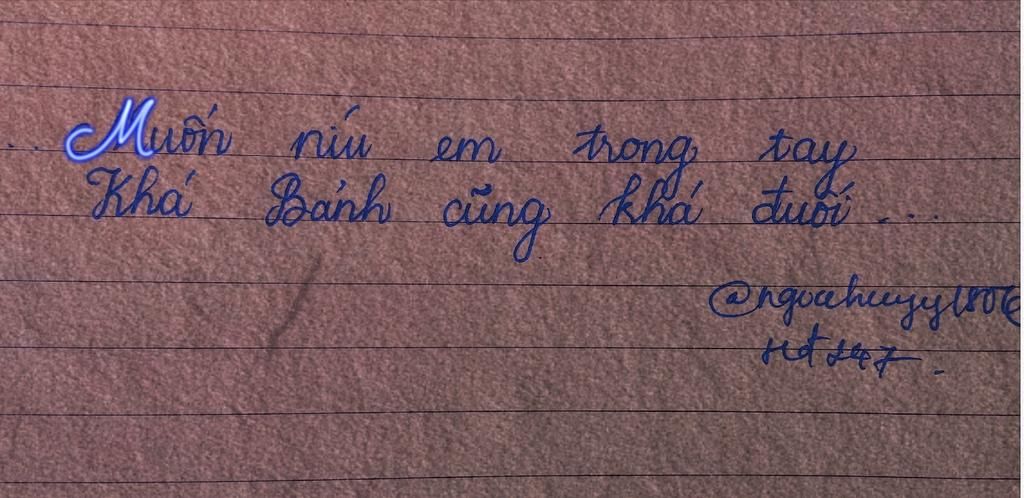 ... Muốn níu em trong tay
Khá Bảnh cũng khá đuối ...
@ngochuyy1806